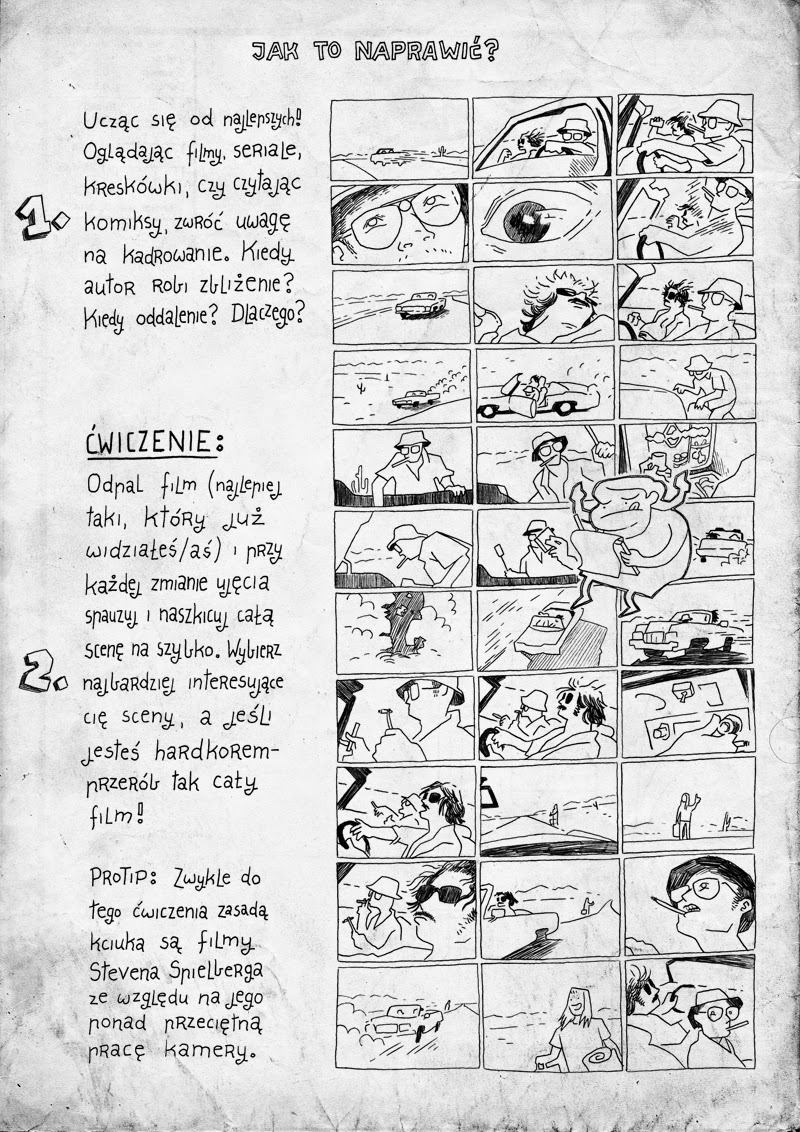 JAK TO NAPRAWIĆ?
1.
Ucząc się od najlepszych!
Oglądając filmy, seriale,
kreskówki, czy czytając
komiksy, zwróć uwagę
na kadrowanie. Kiedy
autor robi zbliżenie?
Kiedy oddalenie? Dlaczego?
ĆWICZENIE:
2.
Odpal film (najlepiej
taki, który już
widziałeś/aś) i przy
każdej zmianie ujęcia
spauzuj i naszkicuj całą
scenę na szybko. Wybierz
najbardziej interesujące
cię sceny, a jeśli
jesteś hardkorem-
przerób tak cały
film!
Protip: Zwykle do
tego ćwiczenia zasadą
kciuka są filmy
Stevena Spielberga
ze względu na jego
ponad przeciętną
pracę kamery.